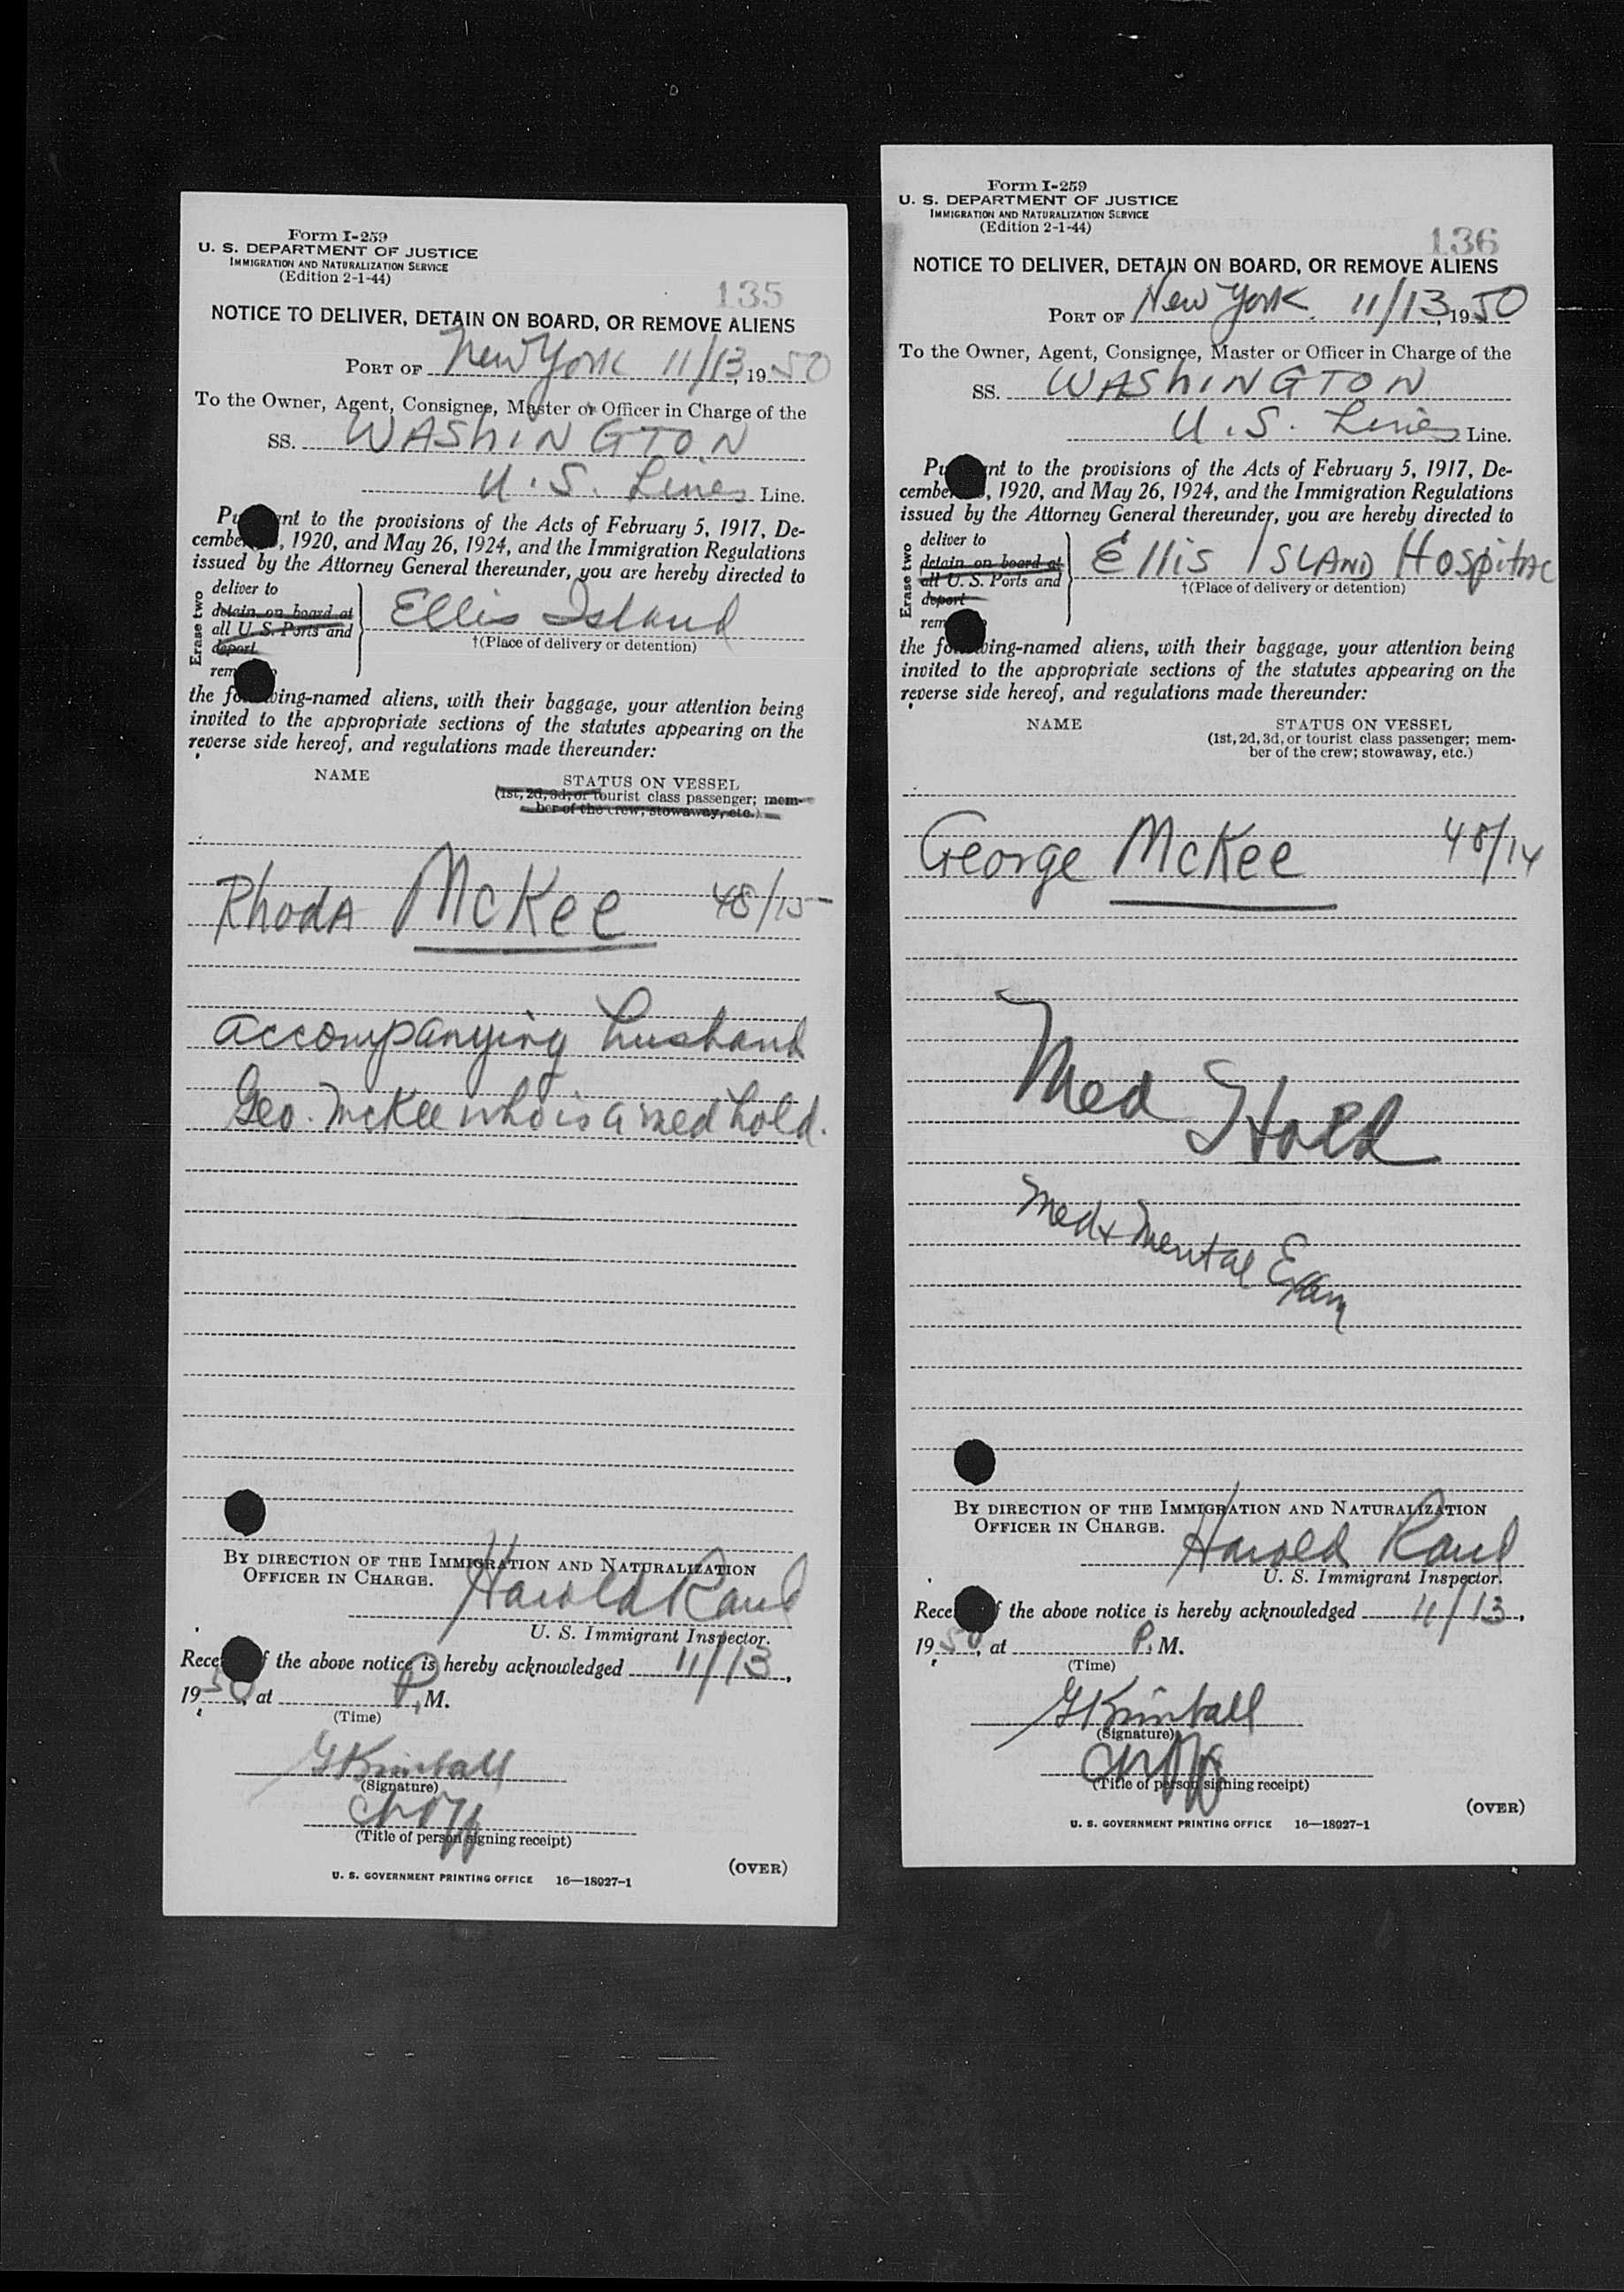 Form I-259
U. S. DEPARTMENT OF JUSTICE
IMMIGRATION AND NATURALIZATION SERVICE
(Edition 2-1-44)
135
NOTICE TO DELIVER, DETAIN ON BOARD, OR REMOVE ALIENS
PORT OF New York 11/13, 1950
To the Owner, Agent, Consignee, Master or Officer in Charge of the
SS. WASHINGTON
U.S. Lines Line.
Pu nt to the provisions of the Acts of February 5, 1917, De-
cembe , 1920, and May 26, 1924, and the Immigration Regulations
issued by the Attorney General thereunder, you are hereby directed to
Erase two
deliver to
detain on board at
all U. S. Ports and
deport
rem
Ellis Island
†(Place of delivery or detention)
the fo wing-named aliens, with their baggage, your attention being
invited to the appropriate sections of the statutes appearing on the
reverse side hereof, and regulations made thereunder:
NAME
STATUS ON VESSEL
(1st, 2d, 3d, or tourist class passenger; mem-
ber of the crew; stowaway, etc.)
Rhoda McKee 48/15
accompanying husband
Geo. McKee who is a med hold.
BY DIRECTION OF THE IMMIGRATION AND NATURALIZATION
OFFICER IN CHARGE.
Harold Raul
U. S. Immigrant Inspector.
Rece f the above notice is hereby acknowledged 11/13,
1950, at P. M.
(Time)
G Kimball
(Signature)
(Title of person signing receipt)
(OVER)
U. S. GOVERNMENT PRINTING OFFICE 16—18927-1
Form I-259
U. S. DEPARTMENT OF JUSTICE
IMMIGRATION AND NATURALIZATION SERVICE
(Edition 2-1-44)
136
NOTICE TO DELIVER, DETAIN ON BOARD, OR REMOVE ALIENS
PORT OF New York 11/13, 1950
To the Owner, Agent, Consignee, Master or Officer in Charge of the
SS. WASHINGTON
U.S. Lines Line.
Pu nt to the provisions of the Acts of February 5, 1917, De-
cembe , 1920, and May 26, 1924, and the Immigration Regulations
issued by the Attorney General thereunder, you are hereby directed to
Erase two
deliver to
detain on board at
all U. S. Ports and
deport
rem
Ellis Island Hospital
†(Place of delivery or detention)
the fo wing-named aliens, with their baggage, your attention being
invited to the appropriate sections of the statutes appearing on the
reverse side hereof, and regulations made thereunder:
NAME
STATUS ON VESSEL
(1st, 2d, 3d, or tourist class passenger; mem-
ber of the crew; stowaway, etc.)
George McKee 48/14
Med Hold
Med + Mental Exam
BY DIRECTION OF THE IMMIGRATION AND NATURALIZATION
OFFICER IN CHARGE.
Harold Raul
U. S. Immigrant Inspector.
Rece f the above notice is hereby acknowledged 11/13,
1950, at P. M.
(Time)
G Kimball
(Signature)
(Title of person signing receipt)
(OVER)
U. S. GOVERNMENT PRINTING OFFICE 16—18927-1